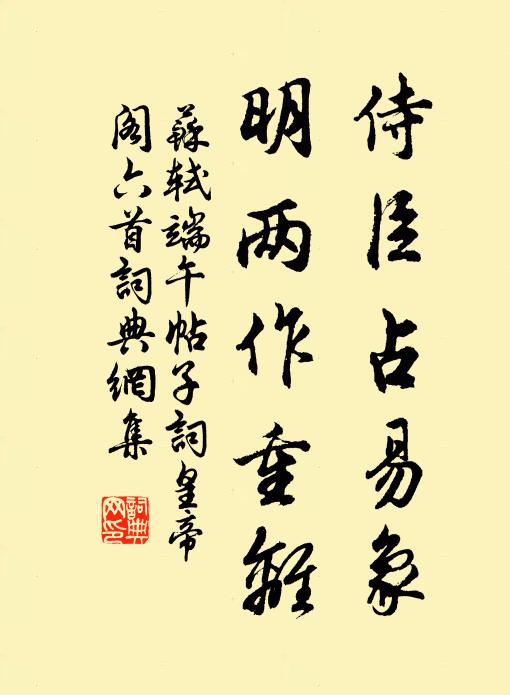 侍臣占易象
明两作重離
蘇軾端午帖子詞皇帝
阁六首詞典網集
詞典网印